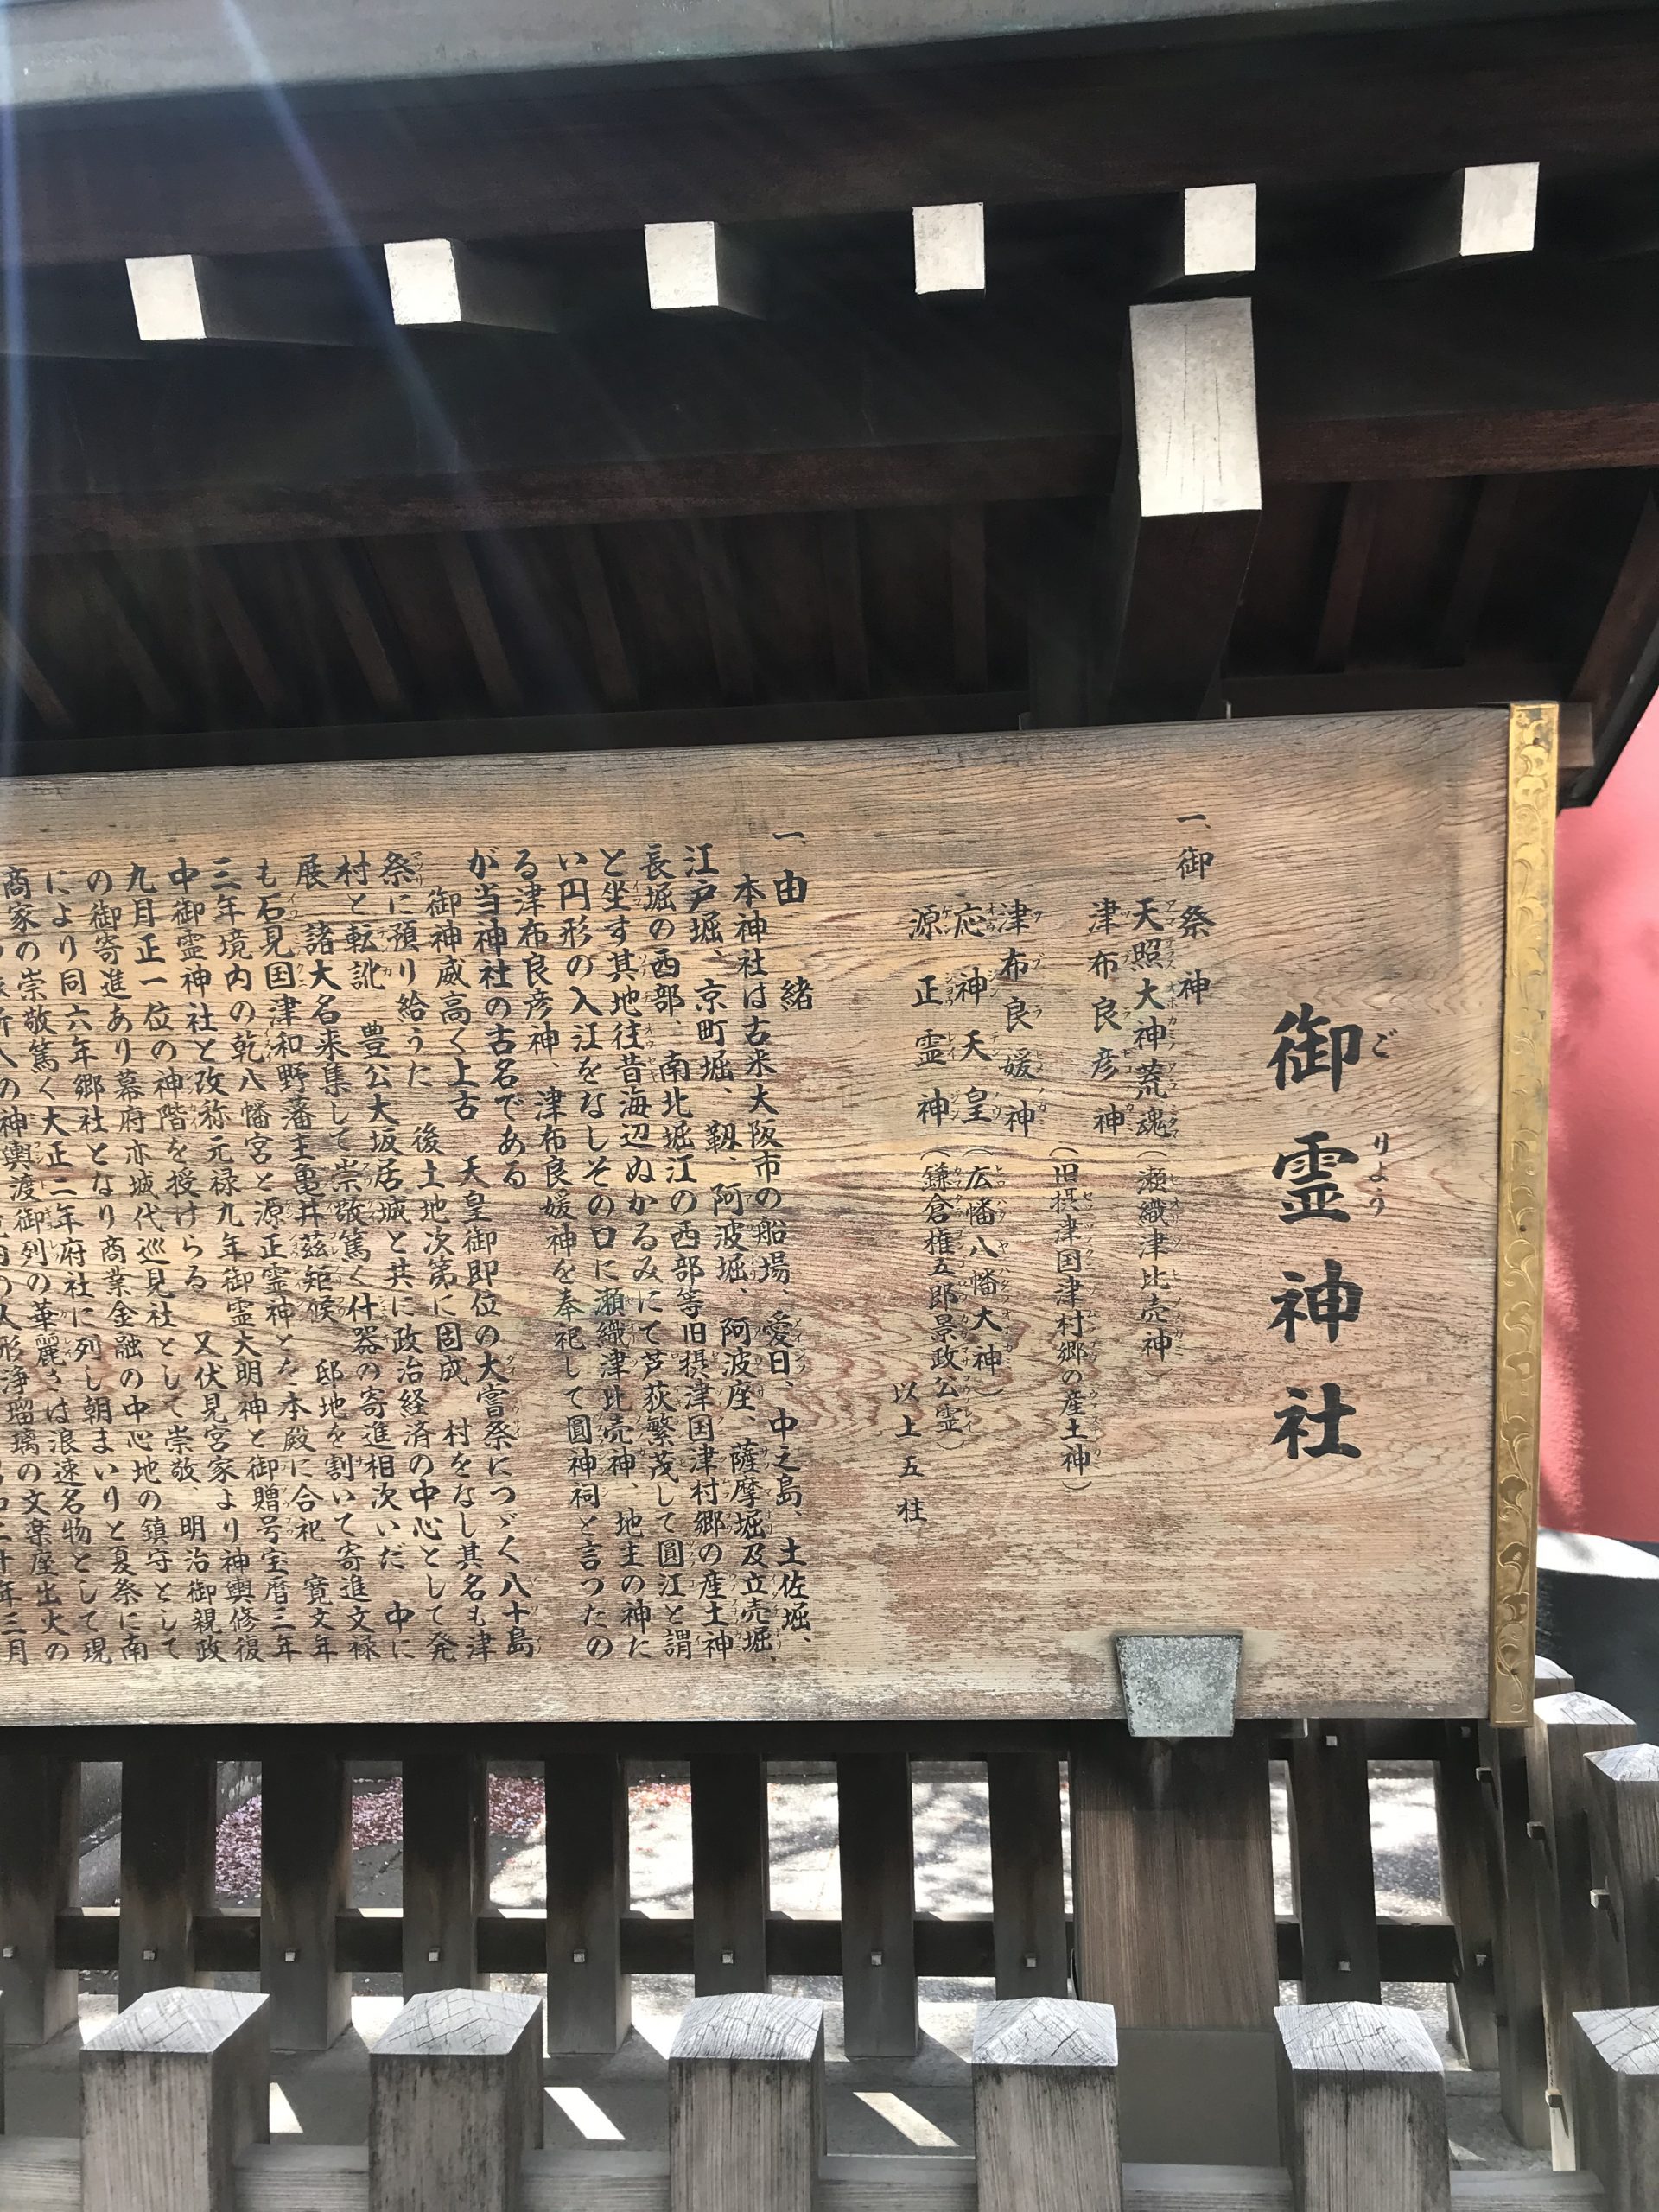 御霊神社
ごりょう
一、御祭神
天照大神荒魂（瀬織津比売神）
津布良彦神
（旧摂津国津村郷の産土神）
津布良媛神
応神天皇（広幡八幡大神）
源正霊神（鎌倉権五郎景政公霊）
以上五柱
一、由緒
本神社は古来大阪市の船場、愛日、中之島、土佐堀、
江戸堀、京町堀、靱、阿波堀、阿波座、薩摩堀及立売堀、
長堀の西部、南北堀江の西部等旧摂津国津村郷の産土神
と坐す其地往昔海辺ぬかるみにて芦荻繁茂して圓江と謂
い円形の入江をなしその口に瀬織津比売神、地主の神た
る津布良彦神、津布良媛神を奉祀して圓神祠と言つたの
が当神社の古名である
御神威高く上古　天皇御即位の大嘗祭につゞく八十島
祭に預り給うた　後土地次第に固成　村をなし其名も津
村と転訛　豊公大坂居城と共に政治経済の中心として発
展　諸大名来集して崇敬篤く什器の寄進相次いだ　中に
も石見国津和野藩主亀井茲矩候　邸地を割いて寄進文禄
三年境内の乾八幡宮と源正霊神とを本殿に合祀　寛文年
中御霊神社と改称元禄九年御霊大明神と御贈号宝暦三年
九月正一位の神階を授けらる　又伏見宮家より神輿修復
の御寄進あり幕府亦城代巡見社として崇敬、明治御親政
により同六年郷社となり商業金融の中心地の鎮守として
商家の崇敬篤く大正二年府社に列し朝まいりと夏祭に南
の神輿渡御列の華麗さは浪速名物として現
人形浄瑠璃の文楽座出火の
年三月